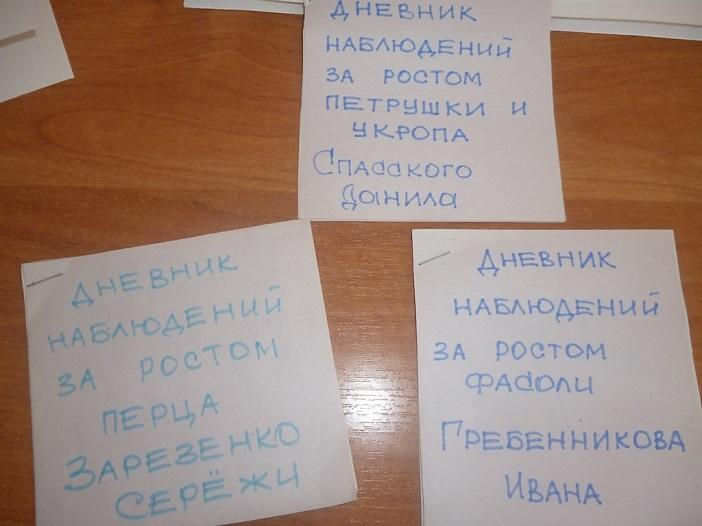 ДНЕВНИК
НАБЛЮДЕНИЙ
ЗА РОСТОМ
ПЕТРУШКИ И
УКРОПА
Спасского
Данила
ДНЕВНИК
НАБЛЮДЕНИЙ
ЗА РОСТОМ
ПЕРЦА
ЗАРЕЗЕНКО
СЕРЁЖИ
ДНЕВНИК
НАБЛЮДЕНИЙ
ЗА РОСТОМ
ФАСОЛИ
ГРЕБЕННИКОВА
ИВАНА